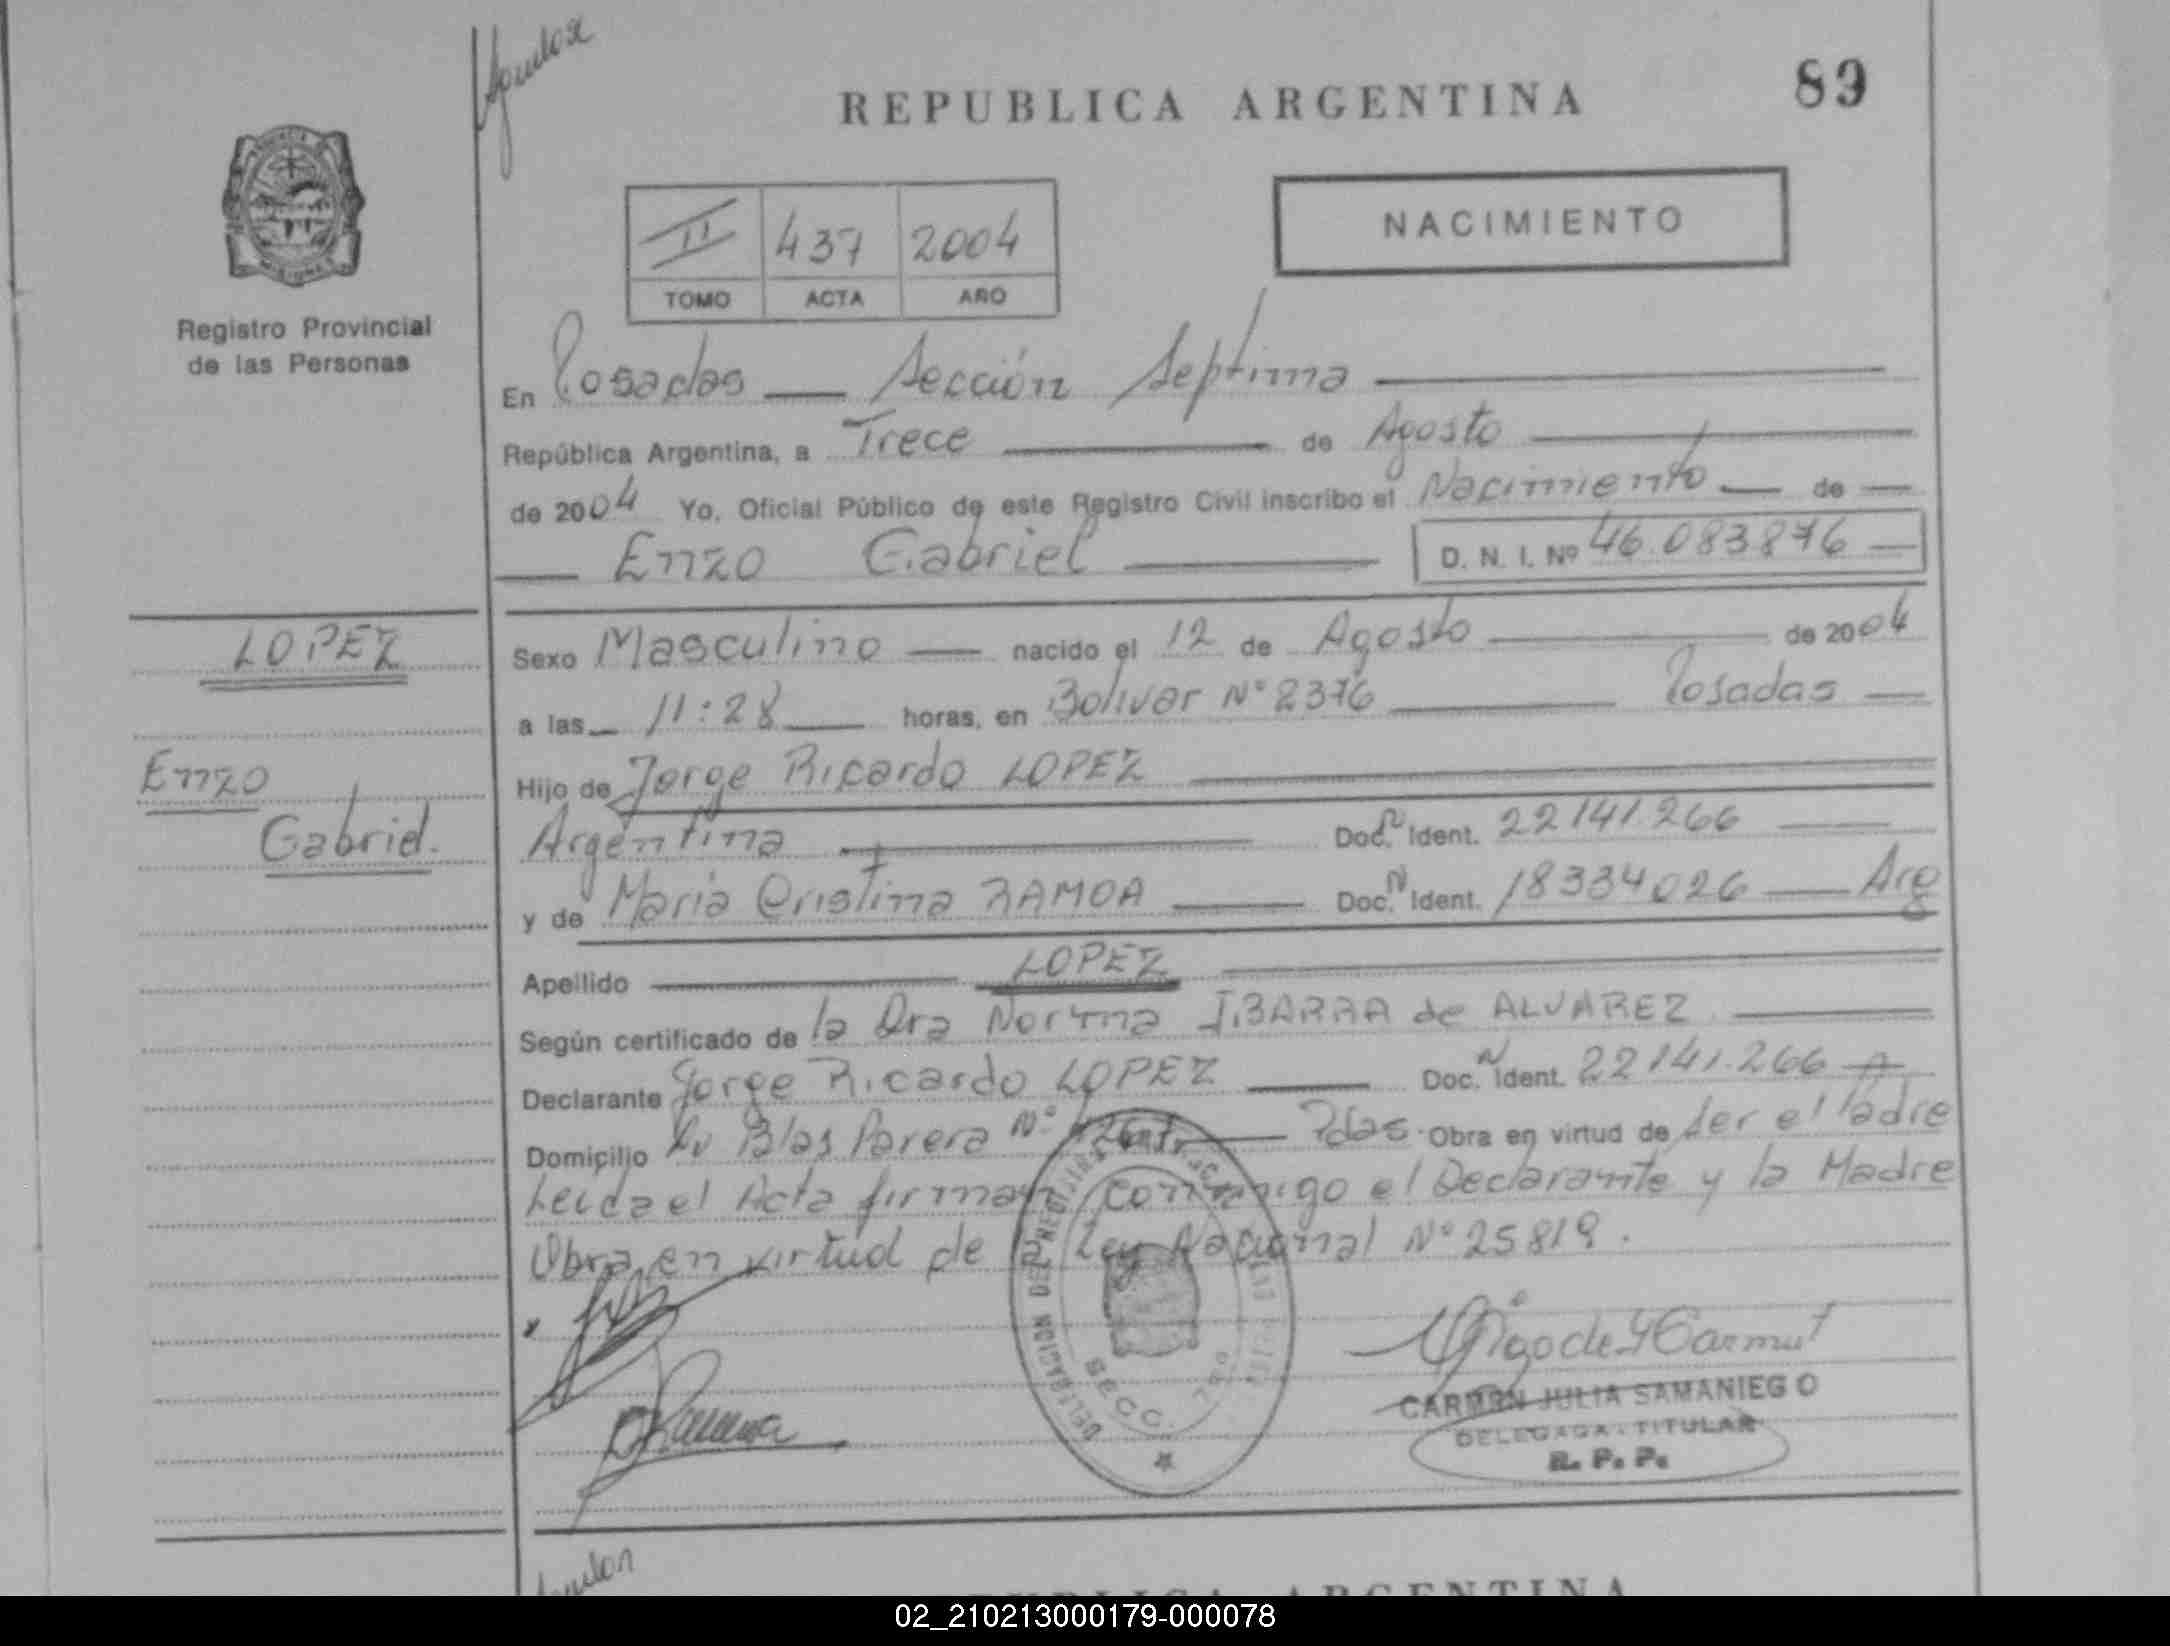 Aguilar
REPUBLICA ARGENTINA
89
Registro Provincial
de las Personas
II 437 2004
TOMO ACTA AÑO
NACIMIENTO
En Posadas — Sección Septima
República Argentina, a Trece de Agosto
de 2004 Yo, Oficial Público de este Registro Civil inscribo el Nacimiento — de —
Enzo Gabriel D. N. I. Nº 46.083876
LOPEZ
Enzo
Gabriel.
Sexo Masculino — nacido el 12 de Agosto de 2004
a las 11:28 horas, en Bolivar Nº 2376 Posadas
Hijo de Jorge Ricardo LOPEZ
Argentina Doc. N Ident. 22141.266
y de Maria Cristina RAMOA Doc. N Ident. 18334026 — Arg
Apellido LOPEZ
Según certificado de la Dra Norma IBARRA de ALVAREZ
Declarante Jorge Ricardo LOPEZ Doc. N Ident. 22141.266
Domicilio Av Blas Parera Nº Pdas. Obra en virtud de ser el Padre
Leida el Acta firman conmigo el Declarante y la Madre
Obra en virtud de la Ley Nacional Nº 25819.
DELEGACION DEL REG.
SECC. 7ma
CARMEN JULIA SAMANIEGO
DELEGADA TITULAR
R. P. P.
Aguilar
REPUBLICA ARGENTINA
02_210213000179-000078